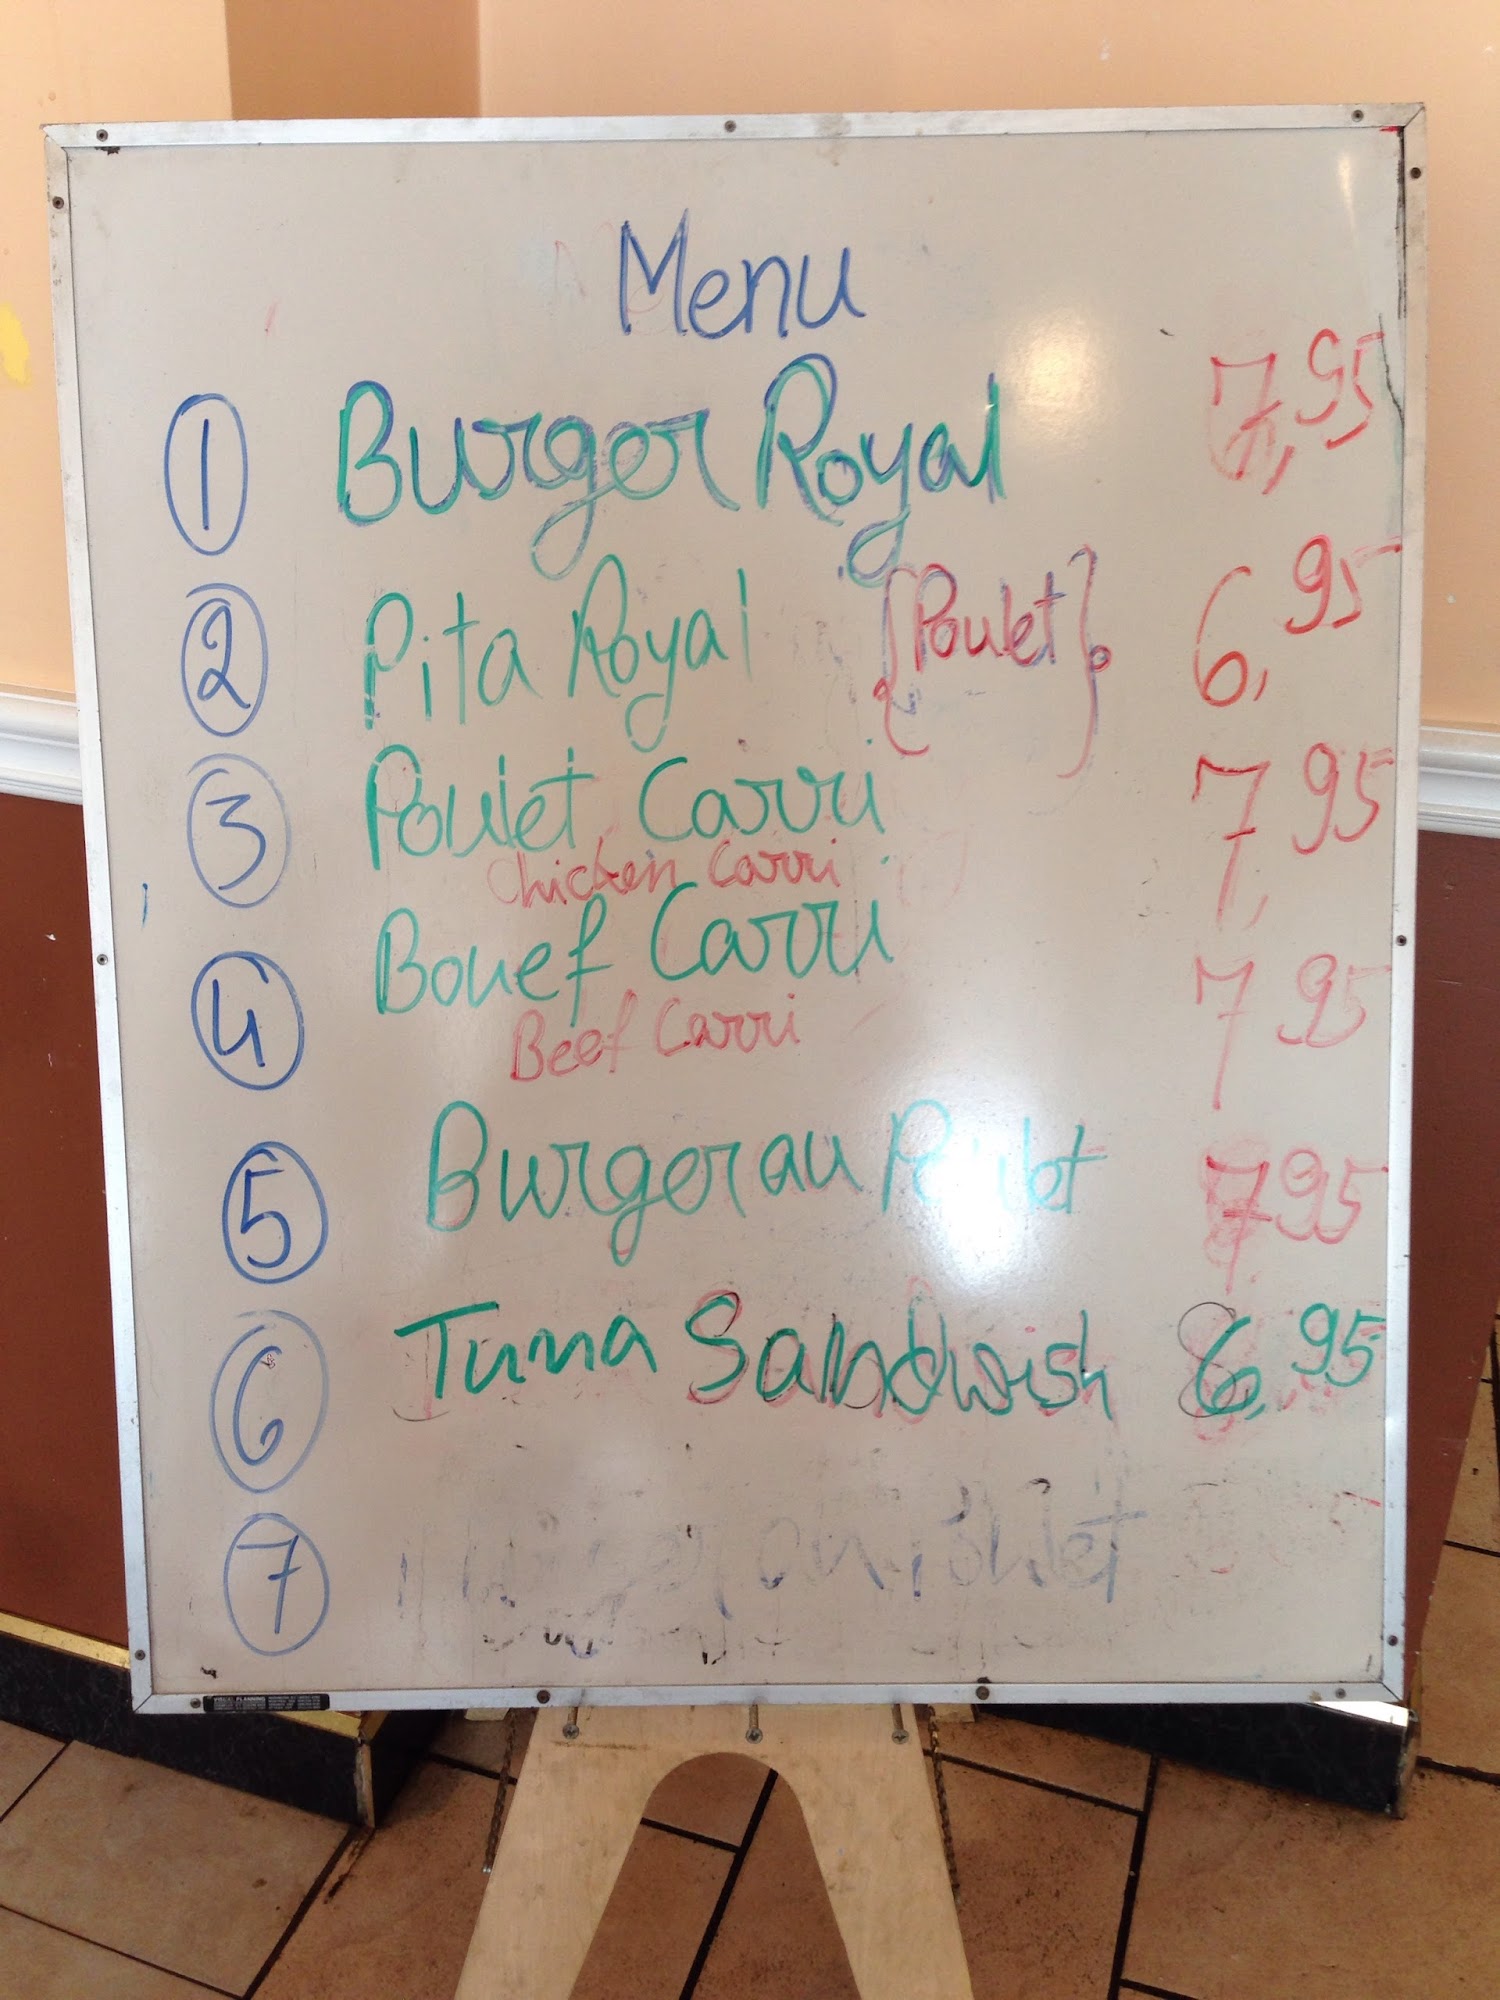 Menu
1 Burger Royal 7,95
2 Pita Royal {Poulet} 6,95
3 Poulet Carri 7,95
Chicken Carri
4 Bouef Carri 7 95
Beef Carri
5 Burger au Poulet 7 95
6 Tuna Sandwish 6,95
7